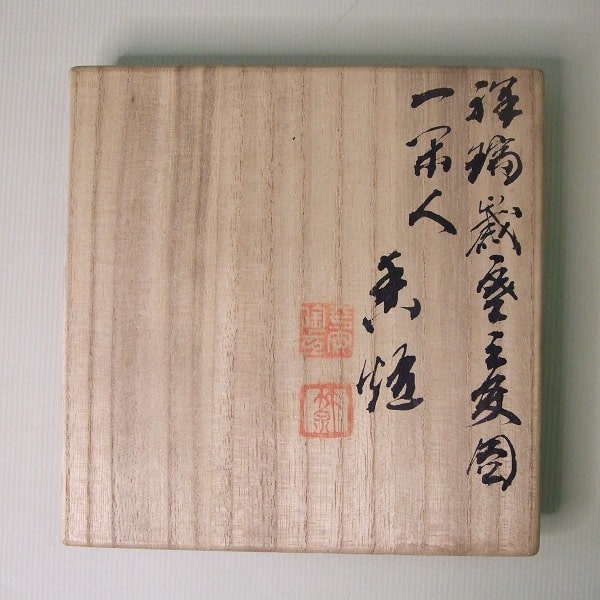 祥瑞歳寒三友図
一閑人
香炉